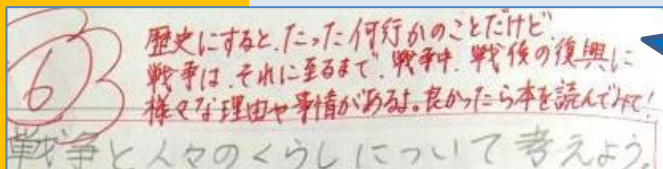 6
歴史にすると、たった何行かのことだけど、
戦争は、それに至るまで、戦争中、戦後の復興に
様々な理由や事情があるよ。良かったら本を読んでみて!
戦争と人々のくらしについて考えよう。